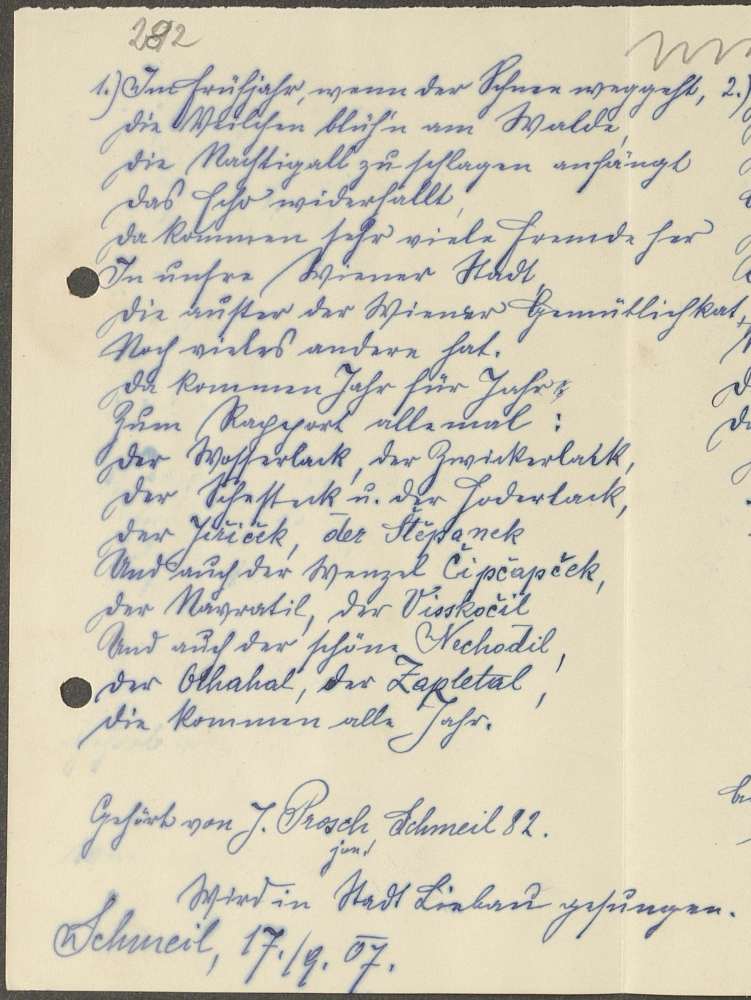 282
1.) Im Frühjahr, wenn der Schnee weggeht, 2.)
Die Veilchen blüh'n am Walde,
Die Nachtigall zu schlagen anfängt
Das Echo widerhallt,
Da kommen sehr viele Fremde her
In unsre Wiener Stadt,
Die außer der Wiener Gemütlichkat,
Noch vieles andere hat.
Da kommen Jahr für Jahr
Zum Rapport allemal:
Der Wosserlack, der Zwickerlack,
Der Schestack u. der Hoderlack,
Der Jiřiček, der Štěpanek
Und auch der Wenzel Čipčapček,
Der Navratil, der Visskočil
Und auch der schöne Nechodil,
Der Olhahal, der Zapletal,
Die kommen alle Jahr.
Gehört von J. Prosch jun. Schmeil 82.
Wird in Stadt Liebau gesungen.
Schmeil, 17./9. 07.